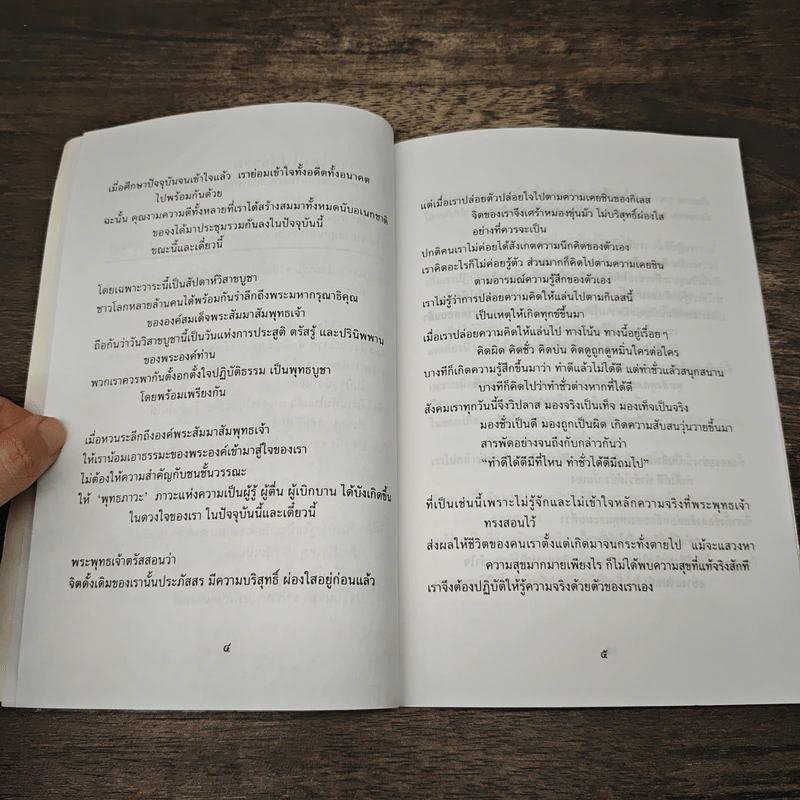 เมื่อศึกษาปัจจุบันจนเข้าใจแล้ว เราย่อมเข้าใจทั้งอดีตทั้งอนาคต
ไปพร้อมกันด้วย
ฉะนั้น คุณงามความดีทั้งหลายที่เราได้สร้างสมมาทั้งหมดนับอเนกชาติ
ขอจงได้มาประชุมรวมกันลงในปัจจุบันนี้
ขณะนี้และเดี๋ยวนี้
โดยเฉพาะวาระนี้เป็นสัปดาห์วิสาขบูชา
ชาวโลกหลายล้านคนได้พร้อมกันรำลึกถึงพระมหากรุณาธิคุณ
ขององค์สมเด็จพระสัมมาสัมพุทธเจ้า
ถือกันว่าวันวิสาขบูชานี้เป็นวันแห่งการประสูติ ตรัสรู้ และปรินิพพาน
ของพระองค์ท่าน
พวกเราควรพากันตั้งอกตั้งใจปฏิบัติธรรม เป็นพุทธบูชา
โดยพร้อมเพรียงกัน
เมื่อหวนระลึกถึงองค์พระสัมมาสัมพุทธเจ้า
ให้เราน้อมเอาธรรมะของพระองค์เข้ามาสู่ใจของเรา
ไม่ต้องให้ความสำคัญกับชนชั้นวรรณะ
ให้ ‘พุทธภาวะ’ ภาวะแห่งความเป็นผู้รู้ ผู้ตื่น ผู้เบิกบาน ได้บังเกิดขึ้น
ในดวงใจของเรา ในปัจจุบันนี้และเดี๋ยวนี้
พระพุทธเจ้าตรัสสอนว่า
จิตดั้งเดิมของเรานั้นประภัสสร มีความบริสุทธิ์ ผ่องใสอยู่ก่อนแล้ว
๔
แต่เมื่อเราปล่อยตัวปล่อยใจไปตามความเคยชินของกิเลส
จิตของเราจึงเศร้าหมองขุ่นมัว ไม่บริสุทธิ์ผ่องใส
อย่างที่ควรจะเป็น
ปกติคนเราไม่ค่อยได้สังเกตความนึกคิดของตัวเอง
เราคิดอะไรก็ไม่ค่อยรู้ตัว ส่วนมากก็คิดไปตามความเคยชิน
ตามอารมณ์ความรู้สึกของตัวเอง
เราไม่รู้ว่าการปล่อยความคิดให้แล่นไปตามกิเลสนี้
เป็นเหตุให้เกิดทุกข์ขึ้นมา
เมื่อเราปล่อยความคิดให้แล่นไป ทางโน้น ทางนี้อยู่เรื่อยๆ
คิดผิด คิดชั่ว คิดบ่น คิดดูถูกดูหมิ่นใครต่อใคร
บางทีก็เกิดความรู้สึกขึ้นมาว่า ทำดีแล้วไม่ได้ดี แต่ทำชั่วแล้วสนุกสนาน
บางทีก็คิดไปว่าทำชั่วต่างหากที่ได้ดี
สังคมเราทุกวันนี้จึงวิปลาส มองจริงเป็นเท็จ มองเท็จเป็นจริง
มองชั่วเป็นดี มองถูกเป็นผิด เกิดความสับสนวุ่นวายขึ้นมา
สารพัดอย่างจนถึงกับกล่าวกันว่า
“ทำดีได้ดีมีที่ไหน ทำชั่วได้ดีมีถมไป”
ที่เป็นเช่นนี้เพราะไม่รู้จักและไม่เข้าใจหลักความจริงที่พระพุทธเจ้า
ทรงสอนไว้
ส่งผลให้ชีวิตของคนเราตั้งแต่เกิดมาจนกระทั่งตายไป แม้จะแสวงหา
ความสุขมากมายเพียงไร ก็ไม่ได้พบความสุขที่แท้จริงสักที
เราจึงต้องปฏิบัติให้รู้ความจริงด้วยตัวของเราเอง
๕